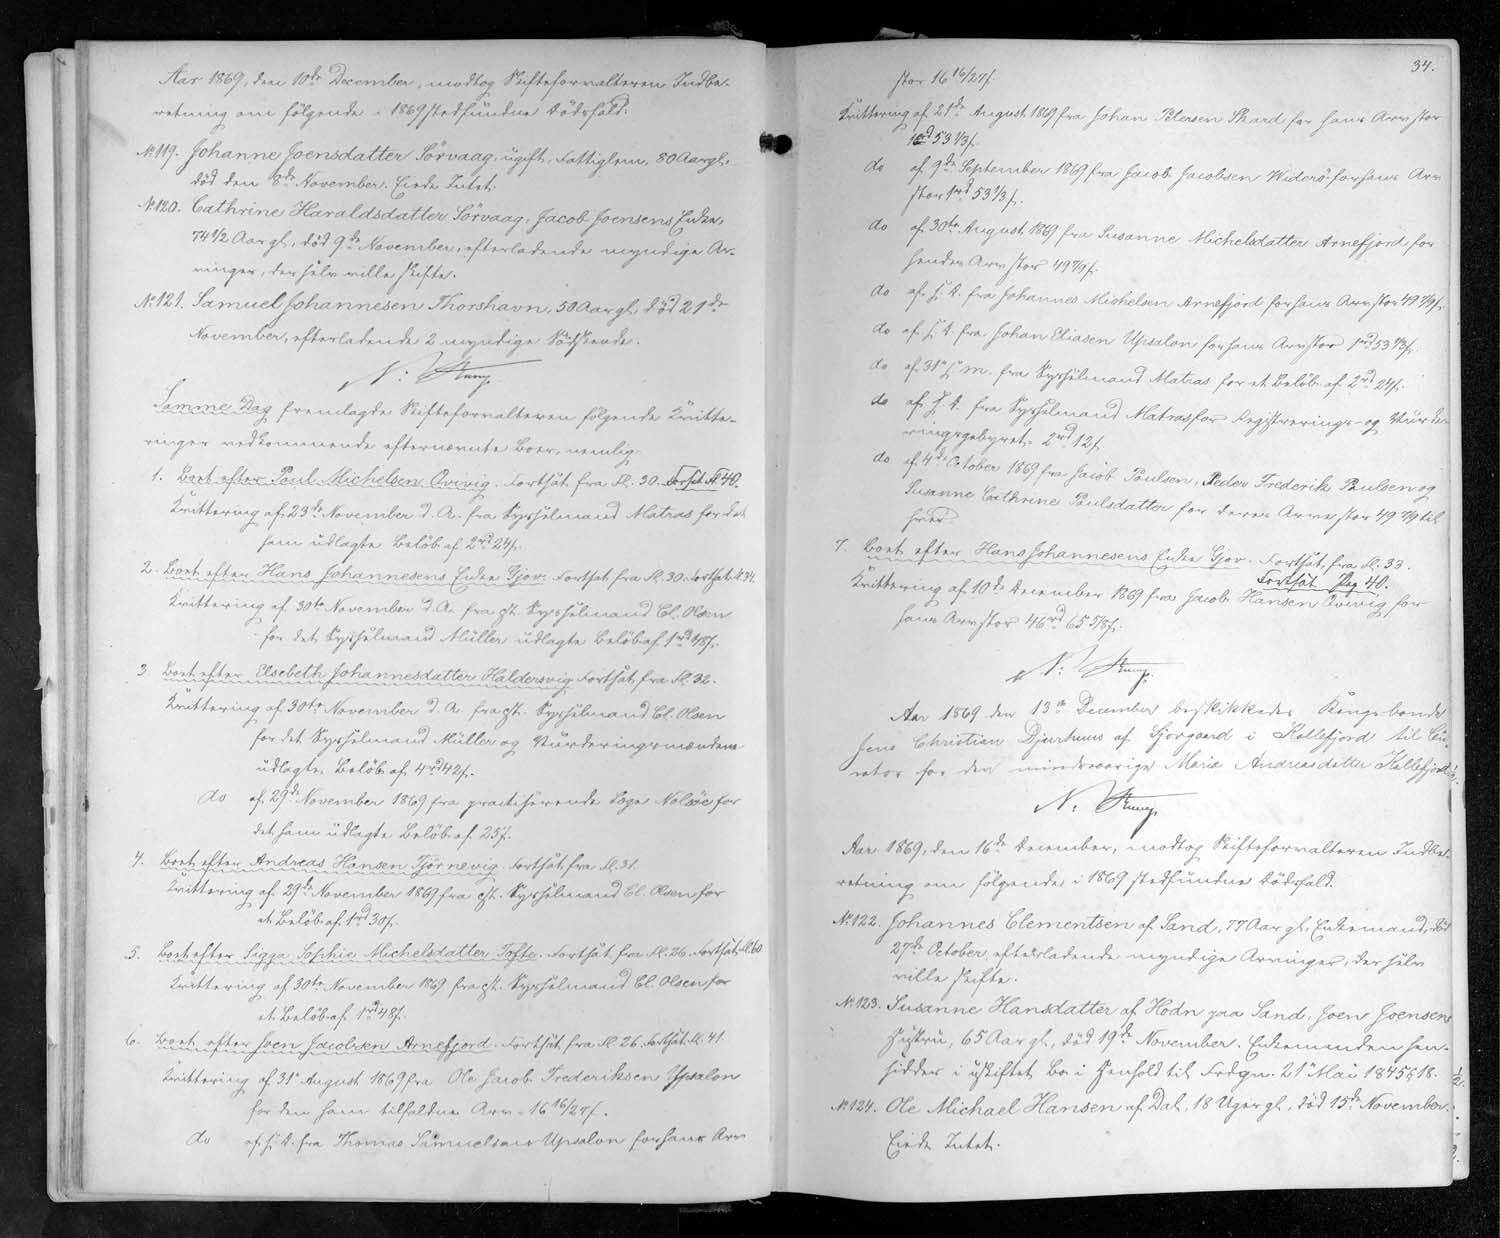 Aar 1869, den 10de December, modtog Skifteforvalteren Indbe-
retning om følgende i 1869 stedfundne Dödsfald:
No 119. Johanne Joensdatter Sörvaag, ugift, Fattiglem, 80 Aar gl.
död den 8de November. Eiede Intet.
No 120. Cathrine Haraldsdatter Sörvaag, Jacob Joensens Enke,
74 1/2 Aar gl, död 9de November, efterladende myndige Ar-
vinger, der selv ville skifte.
No 121. Samuel Johannesen Thorshavn, 50 Aar gl, död 21de
November, efterladende 2 myndige Södskende.
Samme Dag fremlagde Skifteforvalteren følgende Kvitte-
ringer vedkommende efternævnte Boer, nemlig:
1. Boet efter Poul Michelsen Qvivig. Fortsat fra Fl. 30. Forts. Fl 40.
Kvittering af 23de November d. A. fra Sysselmand Matras for det
ham udlagte Belöb af 2rd 24s.
2. Boet efter Hans Johannesens Enke Gjov. Fortsat fra Fl. 30. Fortsat Fl. 34.
Kvittering af 30te November d. A. fra cst. Sysselmand Cl. Olsen
for det Sysselmand Müller udlagte Belöb af 1rd 48s.
3. Boet efter Elsebeth Johannesdatter Haldersvig. Fortsat fra Fl. 32.
Kvittering af 30te November d. A. fra cst. Sysselmand Cl. Olsen
for det Sysselmand Müller og Vurderingsmændene
udlagte Belöb af 4rd 42s.
do af 29de November 1869 fra practiserende Læge Nolsöe for
det ham udlagte Belöb af 25s.
4. Boet efter Andreas Hansen Tjörnevig. Fortsat fra Fl. 31.
Kvittering af 29de November 1869 fra cst. Sysselmand Cl. Olsen for
et Belöb af 1rd 30s.
5. Boet efter Sigga Sophie Michelsdatter Tofte. Fortsat fra Fl. 26. Fortsat Fl. 60
Kvittering af 30te November 1869 fra cst. Sysselmand Cl. Olsen for
et Belöb af 1rd 48s.
6. Boet efter Joen Jacobsen Arnefjord. Fortsat fra Fl. 26. Fortsat Fl. 41.
Kvittering af 31te August 1869 fra Ole Jacob Frederiksen Upsalon
for den ham tilfaldne Arv 16 16/27 s.
do af s. D. fra Thomas Samuelsen Upsalon for hans Arv
34.
stor 16 16/27 s.
Kvittering af 21de August 1869 fra Johan Petersen Skard for hans Arv stor
1rd 53 1/3 s.
do af 9de September 1869 fra Jacob Jacobsen Viderö for hans Arv
stor 1rd 53 1/3 s.
do af 30te August 1869 fra Susanne Michelsdatter Arnefjord for
hendes Arv stor 49 7/9 s.
do af s. D. fra Johannes Michelsen Arnefjord for hans Arv stor 49 7/9 s.
do af s. D. fra Johan Eliasen Upsalon for hans Arv stor 1rd 53 1/3 s.
do af 31te s. M. fra Sysselmand Matras for et Belöb af 2rd 24s.
do af s. D. fra Sysselmand Matras for Registrerings- og Vurde-
ringsgebyret 2rd 12s.
do af 4de October 1869 fra Jacob Poulsen, Peder Frederik Poulsen og
Susanne Cathrine Poulsdatter for deres Arv stor 49 7/9 til
hver.
7. Boet efter Hans Johannesens Enke Gjov. Fortsat fra Fl. 33.
Fortsat Pag 40.
Kvittering af 10de December 1869 fra Jacob Hansen Qvivig for
hans Arv stor 46rd 65 5/8 s.
Aar 1869 den 13de December beskikkedes Kongsbonde
Jens Christian Djurhuus af Sjorgaard i Kollefjord til Cu-
rator for den mindreaarige Maria Andreasdatter Kollefjord.
Aar 1869, den 16de December, modtog Skifteforvalteren Indbe-
retning om følgende i 1869 stedfundne Dödsfald.
No 122. Johannes Clementsen af Sand, 77 Aar gl, Enkemand, död
27de October, efterladende myndige Arvinger, der selv
ville skifte.
No 123. Susanne Hansdatter af Hodn paa Sand, Joen Joensens
Hustru, 65 Aar gl, död 19de November. Enkemanden hen-
sidder i uskiftet Bo i Henhold til Frdgn. 21de Mai 1845 § 18.
No 124. Ole Michael Hansen af Dal, 18 Uger gl, död 15de November.
Eiede Intet.